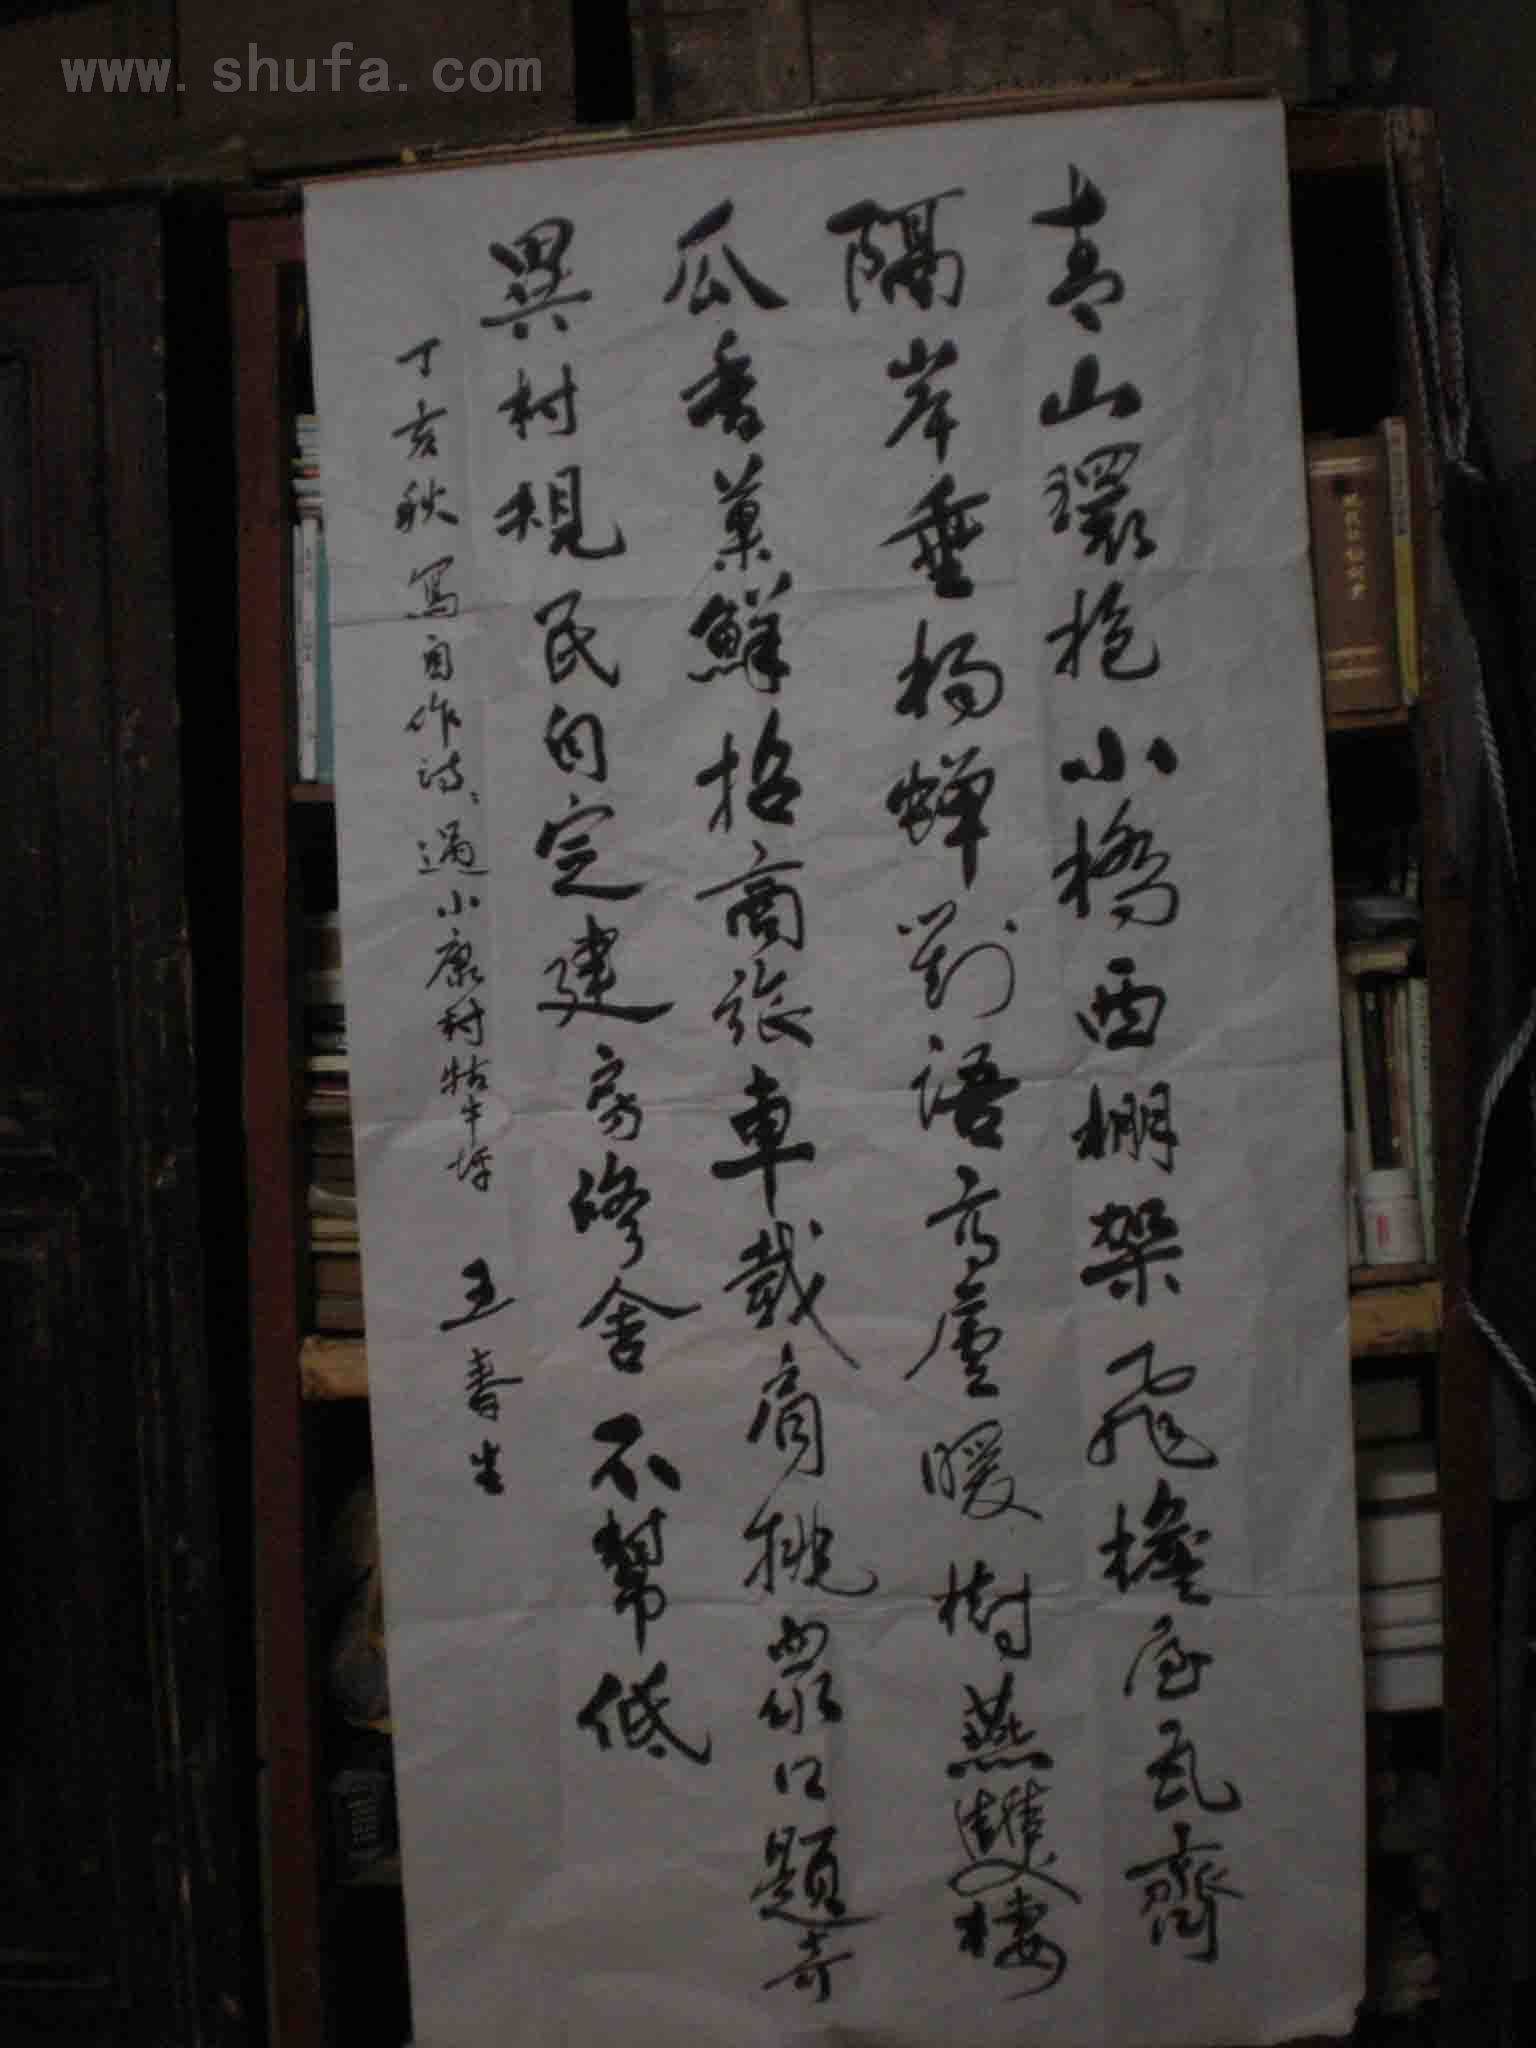 www.shufa.com
青山環抱小橋西棚架飛檐屋瓦齊
隔岸垂楊蟬對語高廬暖樹燕雙棲
瓜香菓鮮招商旅車載肩挑眾口題奇
異村規民自定建房修舍不幫低
丁亥秋寫自作詩：過小康村牯牛坪 王春生